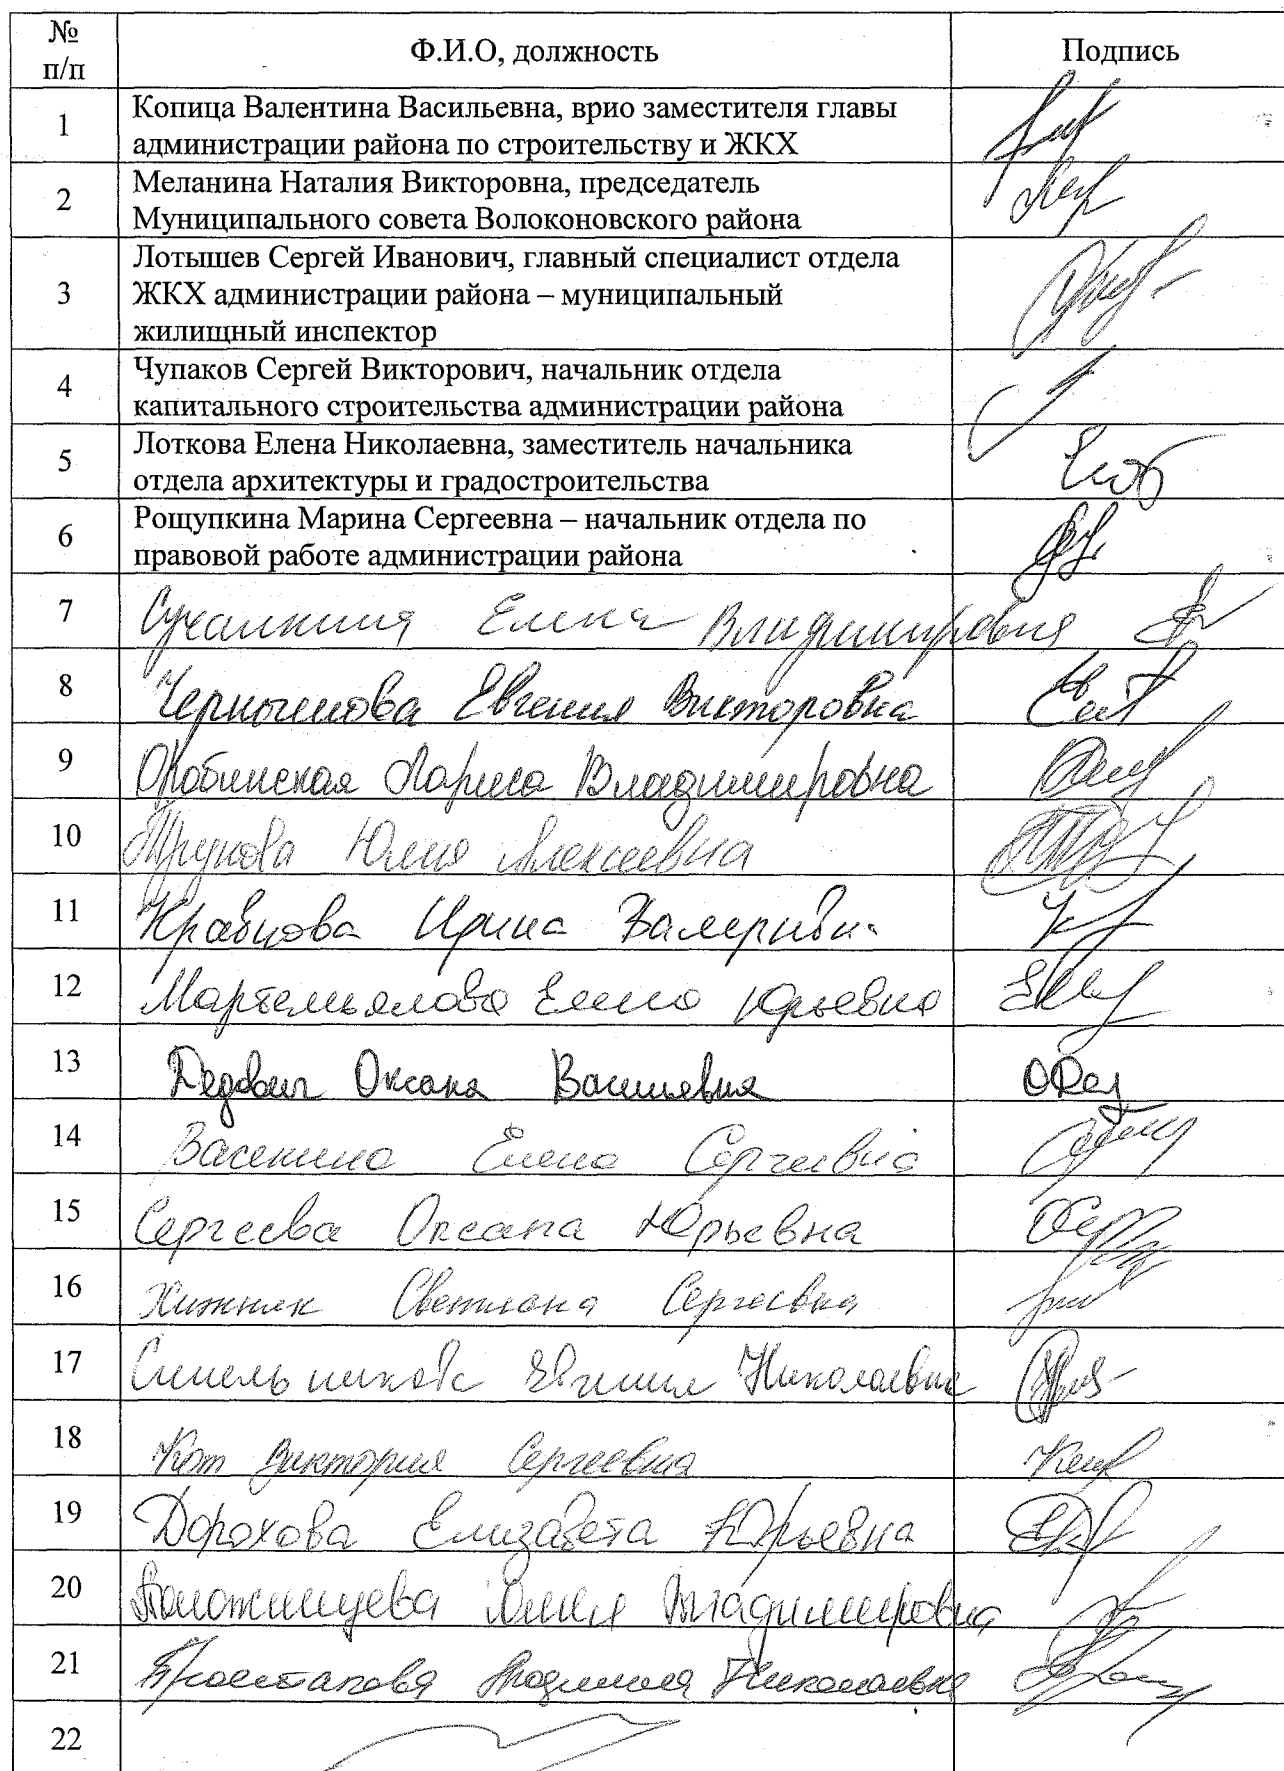 №
п/п
Ф.И.О, должность
Подпись
1
Копица Валентина Васильевна, врио заместителя главы
администрации района по строительству и ЖКХ
2
Меланина Наталия Викторовна, председатель
Муниципального совета Волоконовского района
3
Лотышев Сергей Иванович, главный специалист отдела
ЖКХ администрации района – муниципальный
жилищный инспектор
4
Чупаков Сергей Викторович, начальник отдела
капитального строительства администрации района
5
Лоткова Елена Николаевна, заместитель начальника
отдела архитектуры и градостроительства
6
Рощупкина Марина Сергеевна – начальник отдела по
правовой работе администрации района
7
Елена Владимировна
8
Евгения Викторовна
9
Лариса Владимировна
10
Трунова Юлия Алексеевна
11
Кравцова Ирина
12
Елена Юрьевна
13
Дедович Оксана Васильевна
14
Васекина Елена Сергеевна
15
Сергеева Оксана Юрьевна
16
Хижняк Светлана Сергеевна
17
Синельникова Евгения Николаевна
18
Кот Виктория Сергеевна
19
Дорохова Елизавета Юрьевна
20
Владимировна
21
Людмила Николаевна
22